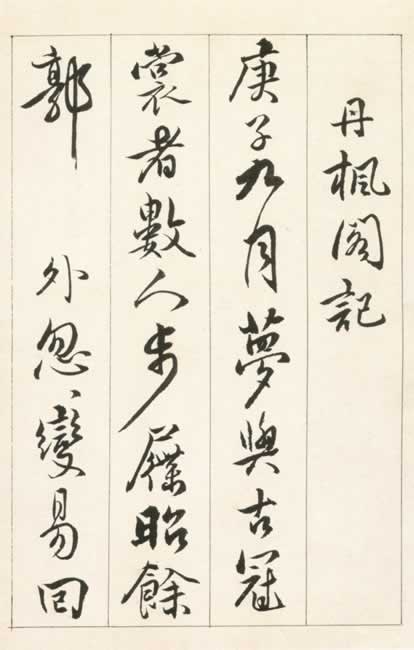 丹楓閣記
庚子九月夢與古冠
裳者數人步屧昭餘
郭 外忽〻變易囘